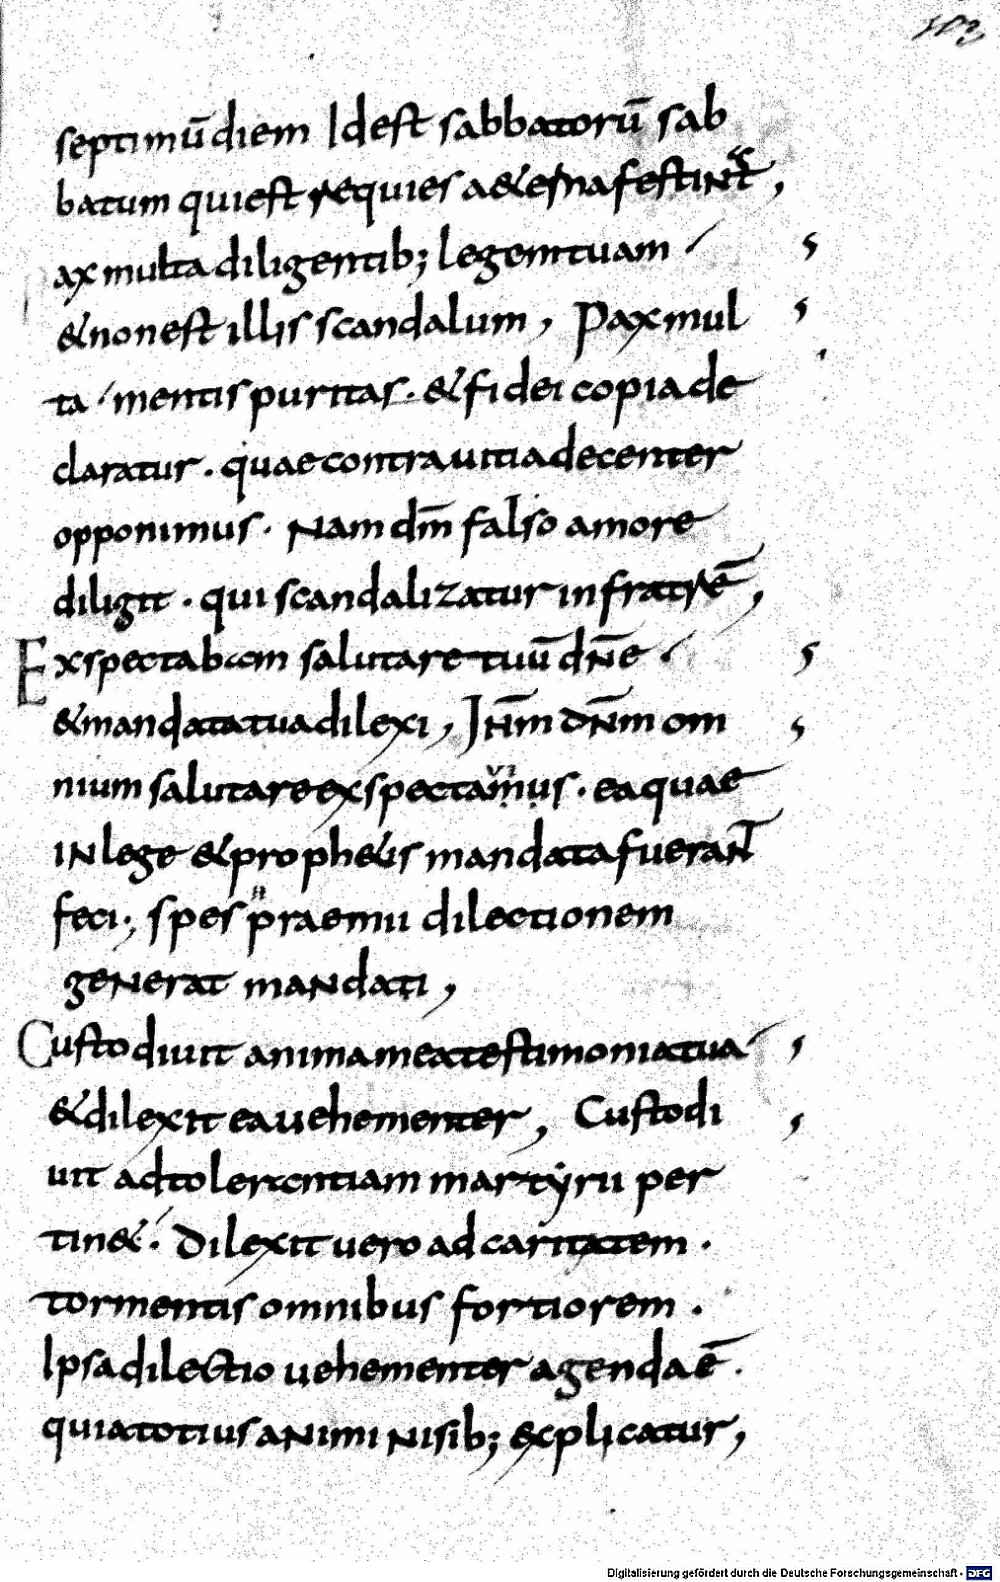 septimū diem Idest sabbatorū sab
batum qui est requies aeterna festinat,
ax multa diligentib; legem tuam
& non est illis scandalum, Pax mul
ta mentis puritas. & fidei copia de
claratur. quae contra uitia decenter
opponimus. Nam dm̄ falso amore
diligit. qui scandalizatur in fratrē,
Exspectabam salutare tuū dn̄e
& mandata tua dilexi, Ihm̄ dn̄m om
nium salutare exspectamus. ea quae
IN lege & proph&is mandata fuerant
feci; spes praemii dilectionem
generat mandati,
Custodiuit anima mea testimonia tua
& dilexit ea uehementer, Custodi
uit ad tolerantiam martyrii per
tin&. Dilexit uero ad caritatem.
tormentis omnibus fortiorem.
Ipsa dilectio uehementer agenda ē.
quia totius animi nisib; explicatur,
Digitalisierung gefördert durch die Deutsche Forschungsgemeinschaft - DFG